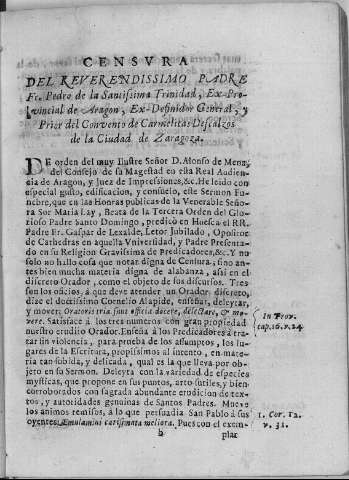 CENSVRA
DEL REVERENDISSIMO PADRE
Fr. Pedro de la Santissima Trinidad, Ex-Pro-
vincial de Aragon, Ex-Definidor General, y
Prior del Convento de Carmelitas Descalzos
de la Ciudad de Zaragoza.
DE orden del muy Ilustre Señor D. Alonso de
del Consejo de su Magestad en esta Real Audien-
cia de Aragon, y Juez de Impressiones, &c. He leido con
especial gusto, edificacion, y consuelo, este Sermon Fu-
nebre, que en las Honras publicas de la Venerable Señora
Sor Maria Lay, Beata de la Tercera Orden del Glo-
rioso Padre Santo Domingo, predicò en Huesca el RR.
Padre Fr. Gaspar de Lexalde, Letor Jubilado, Opositor
de Cathedras en aquella Vniversidad, y Padre Presenta-
do en su Religion Gravissima de Predicadores, &c. Y no
solo no hallo cosa que notar digna de Censura, sino an-
tes bien mucha materia digna de alabanza, assi en el
discreto Orador, como el objeto de sus discursos. Tres
son los oficios, à que deve atender un Orador discreto,
dize el doctissimo Cornelio Alapide, enseñar, deleytar,
y mover: Oratoris tria sunt officia docere, delectare, & mo-
vere. Satisface à los tres numeros con gran propiedad
nuestro erudito Orador. Enseña à los Predicadores à tra-
tar sin violencia, para prueba de los assumptos, los lu-
gares de la Escritura, propissimos al intento, en mate-
ria tan subida, y delicada, qual es la que lleva por ob-
jeto en su Sermon. Deleyta con la variedad de especies
mysticas, que propone en sus puntos, arto sutiles, y bien
corroborados con sagrada abundante erudicion de tex-
tos, y autoridades genuinas de Santos Padres. Mueve
los animos remisos, à lo que persuadia San Pablo à sus
oyentes: Æmulamini carismata meliora. Pues con el exem-
b
plar
In Prov.
cap. 16. v. 24.
1. Cor. 12.
v. 31.